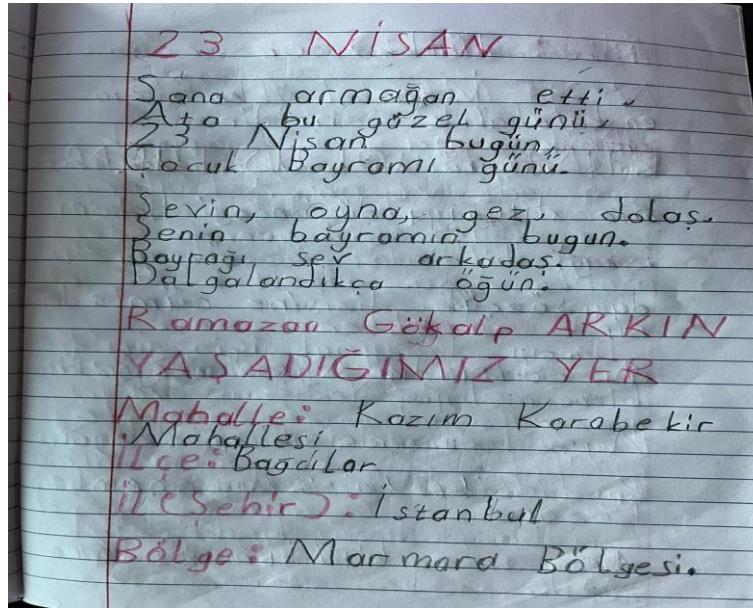 23 NİSAN
Sana armağan etti,
Ata bu güzel günü,
23 Nisan bugün,
Çocuk Bayramı günü.
Sevin, oyna, gez, dolaş.
Senin bayramın bugun.
Bayrağı sev arkadaş.
Dalgalandikça öğün.
Ramazan Gökalp ARKIN
YAŞADIĞIMIZ YER
Mahalle: Kazım Karabekir
Mahallesi
İlçe: Bağcılar
İl (Şehir): İstanbul
Bölge: Marmara Bölgesi.